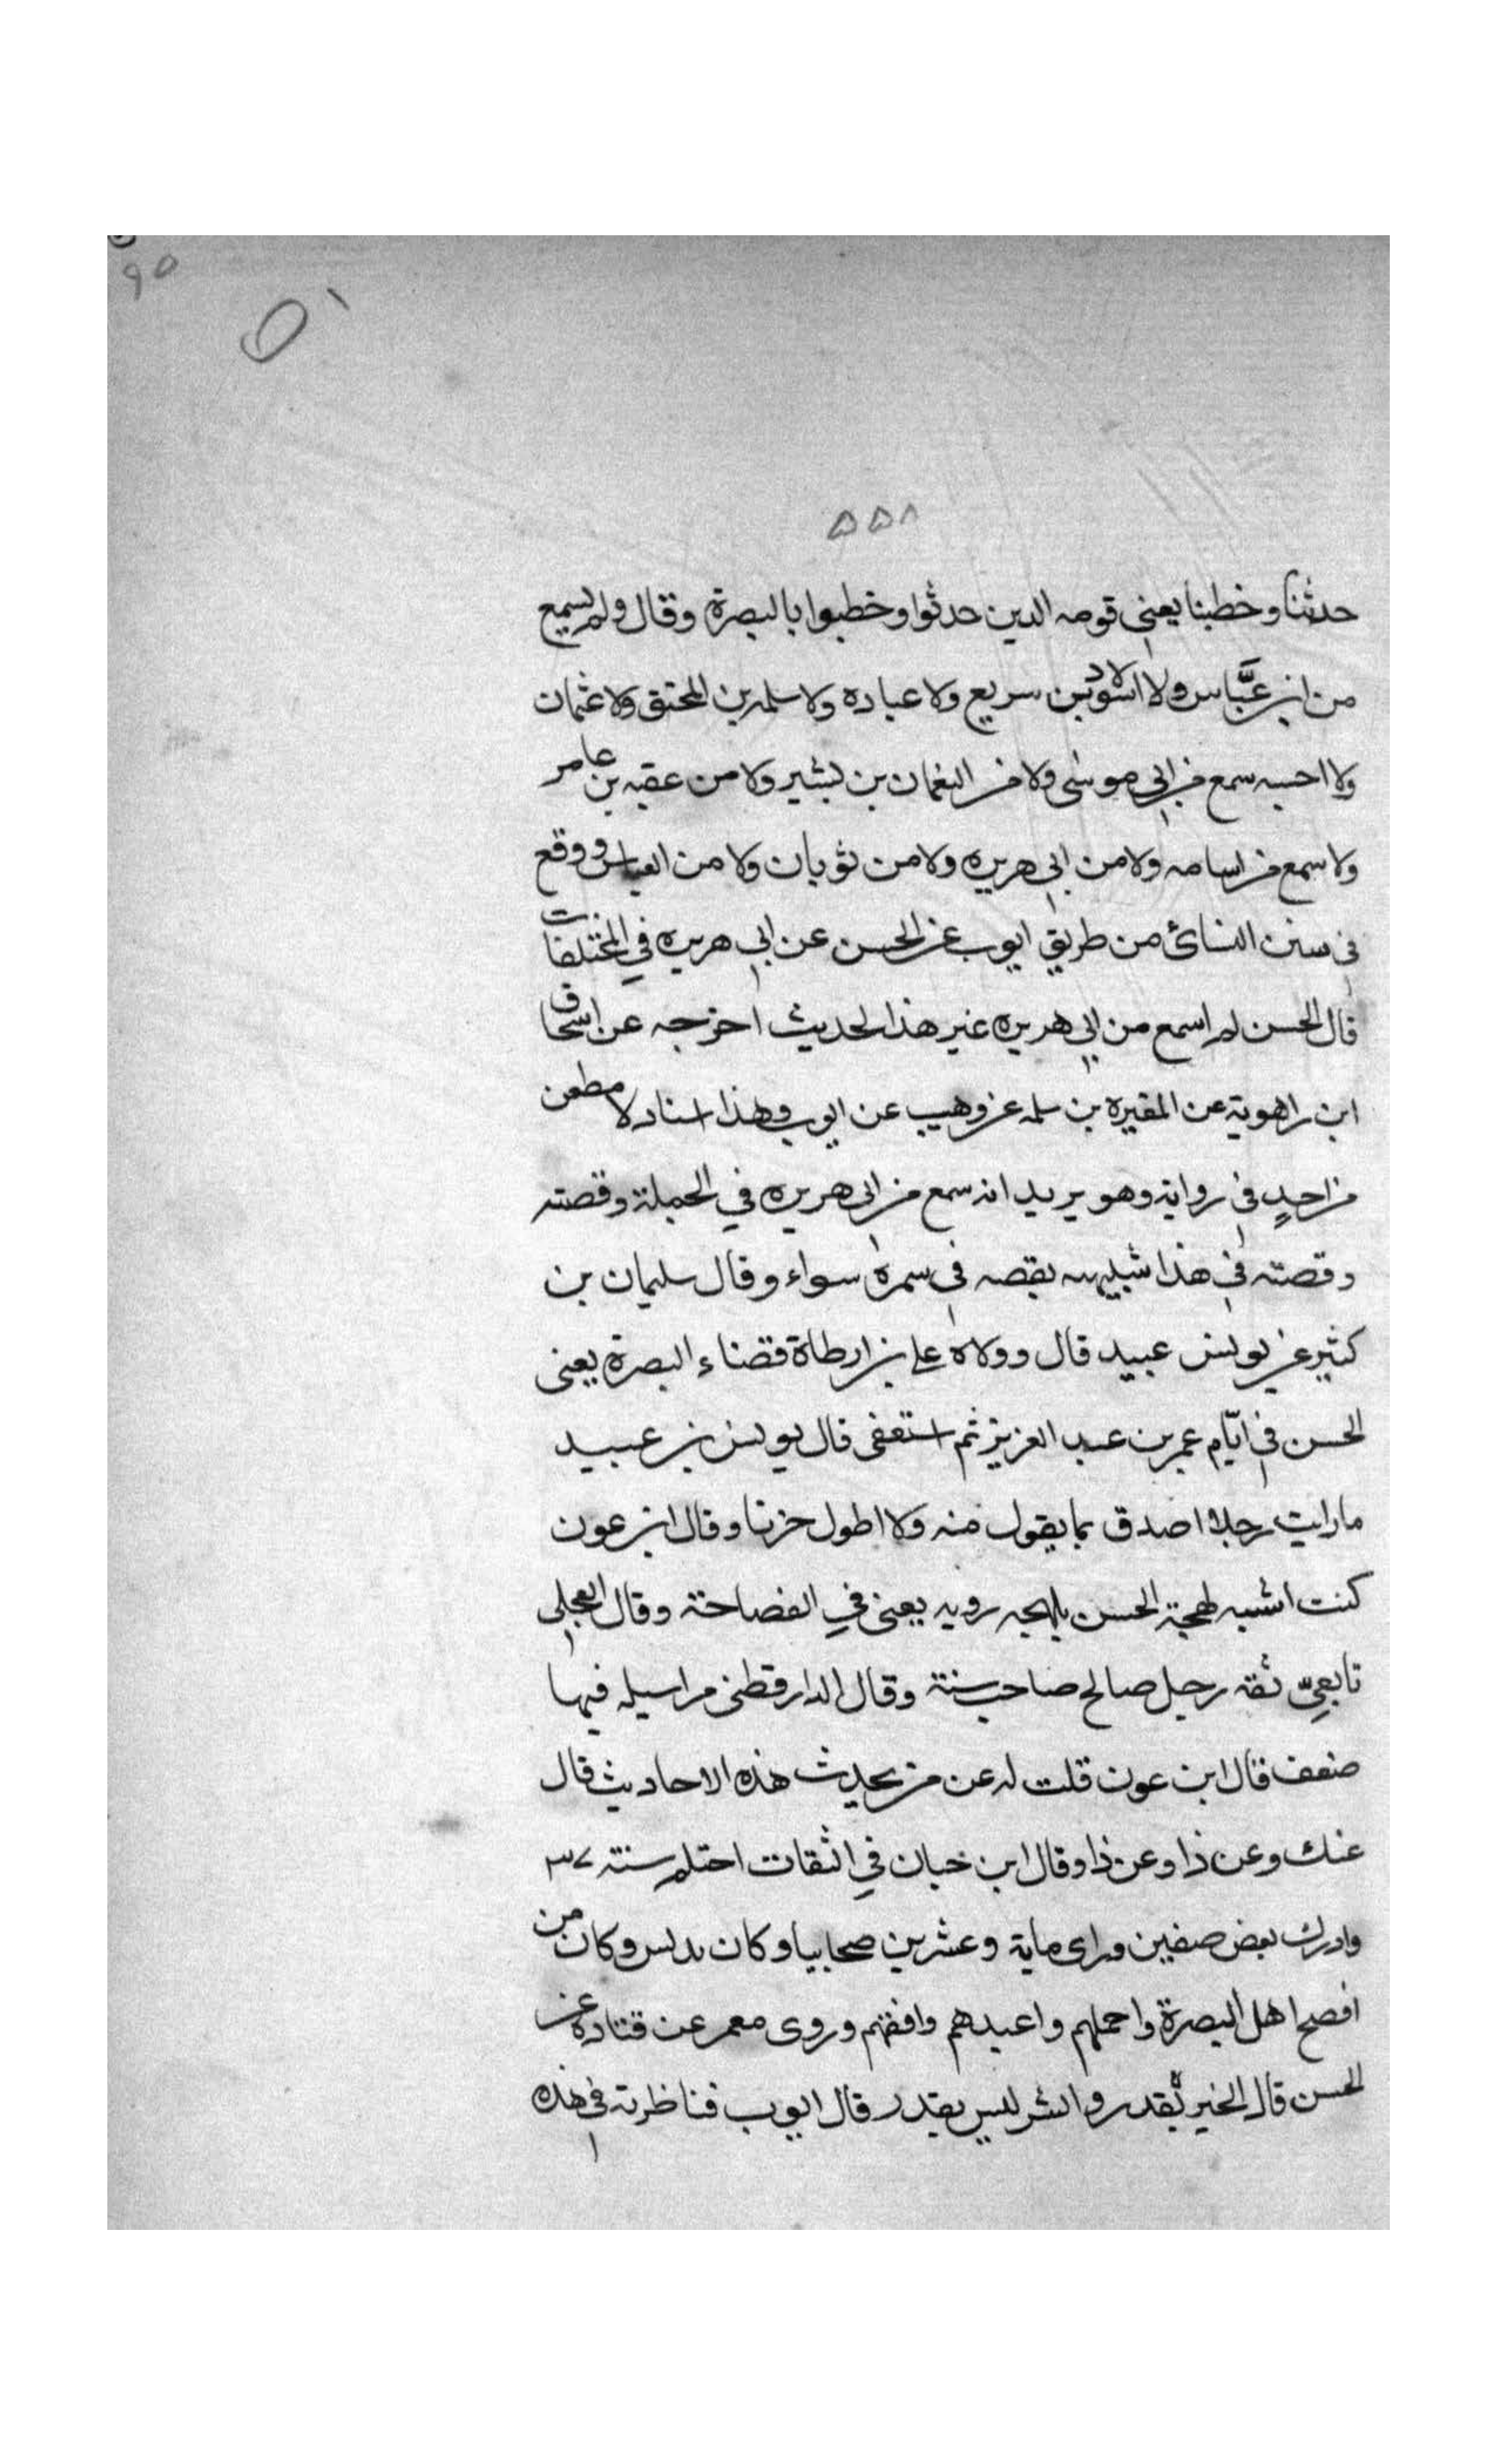 ٩٥
٥١
٥٥٨
حدثنا وخطبنا يعني قومه الدين حدثوا وخطبوا بالبصرة وقال ولم يسمع
من ابن عبَّاس ولا الاسود بن سريع ولا عباده ولا سلمه بن المحنق ولا عثمان
ولا احسبه سمع من ابي موسى ولا من النعمان بن بشير ولا من عقبه بن عامر
ولا سمع من اسامه ولا من ابي هريره ولا من ثوبان ولا من العباس ووقع
في سنن النسائ من طريق ايوب عن الحسن عن ابي هريره في المختلفات
قال الحسن لم اسمع من ابي هريره غير هذا الحديث اخرجه عن اسحاق
ابن راهوية عن المغيره بن سلمه عن وهيب عن ايوب وهذا اسناد لا مطعن
من احدٍ في رواية وهو يريد انه سمع من ابي هريره في الجملة وقصته
وقصته في هذا شبيهه بقصه في سمرة سواء وقال سليمان بن
كثير عن يونس عبيد قال وولاه على بن ارطاة قضاء البصرة يعني
الحسن في ايّام عمر بن عبد العزيز ثم استعفى قال يونس بن عبيد
ما رايت رجلا اصدق بما يقول منه ولا اطول حزنا وقال ابن عون
كنت اشبه لهجة الحسن بلهجه روبه يعني في الفصاحة وقال العجلي
تابعيّ ثقة رجل صالح صاحب سنة وقال الدارقطني مراسيله فيها
ضعف قال ابن عون قلت له عن من يحديث هذه الاحاديث قال
عنك وعن ذا وعن ذا وقال ابن حبان في الثقات احتلم سنة ٣٧
وادرك بعض صفين وراى ماية وعشرين صحابيا وكان يدلس وكان من
افصح اهل البصرة واجملهم واعبدهم وافقهم وروى معمر عن قتاده عن
الحسن قال الخير بقدر والشر ليس بقدر قال ايوب فناظرته في هذه